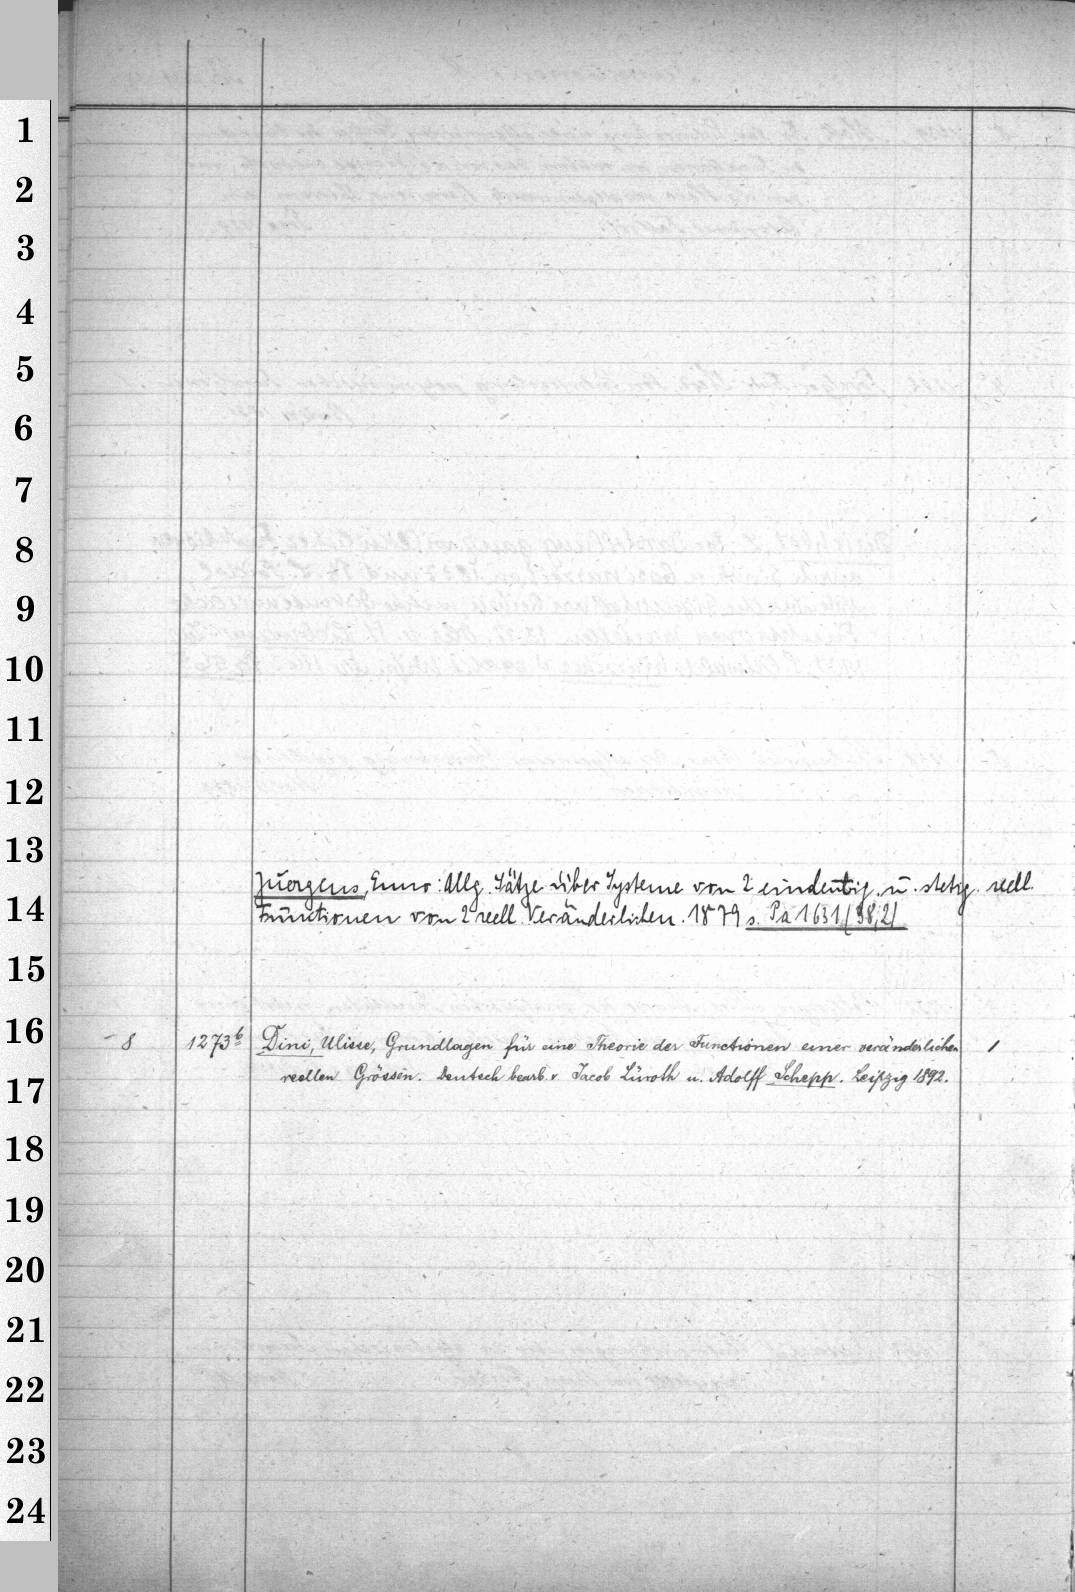 1
2
3
4
5
6
7
8
9
10
11
12
13
Juergens, Enno: Allg. Sätze über Systeme von 2 eindeutig. u. stetig. reell.
14
Functionen von 2 reell. Veränderlichen. 1879 s. Pa 1631/(38,2)
15
16
- 8 1273b Dini, Ulisse, Grundlagen für eine Theorie der Functionen einer veränderlichen 1
reellen Grössen. Deutsch bearb. v. Jacob Lüroth u. Adolff Schepp. Leipzig 1892.
17
18
19
20
21
22
23
24